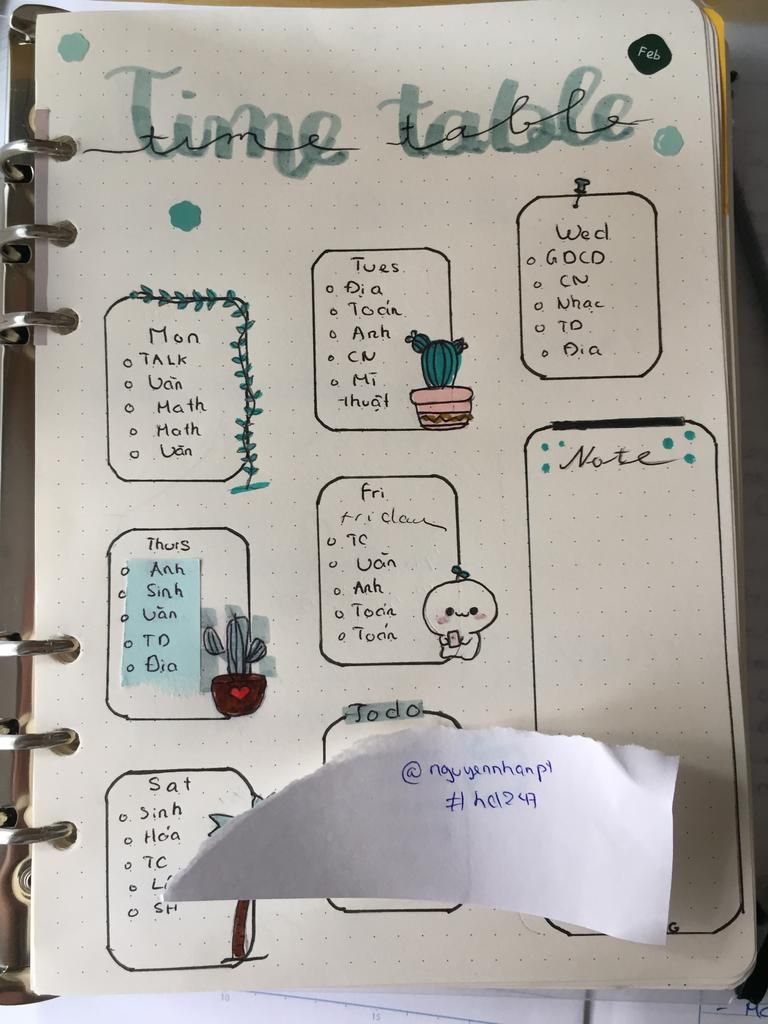 Feb
Time table
time table
Mon
TALK
Văn
Math
Math
Văn
Tues
Địa
Toán
Anh
CN
Mĩ
thuật
Wed
GDCD
CN
Nhạc
TD
Địa
Thurs
Anh
Sinh
Văn
TD
Địa
Fri
Friday
TC
Văn
Anh
Toán
Toán
Note
Sat
Sinh
Hóa
TC
SH
To do
@nguyennhanpt
#hd247
G
10
15